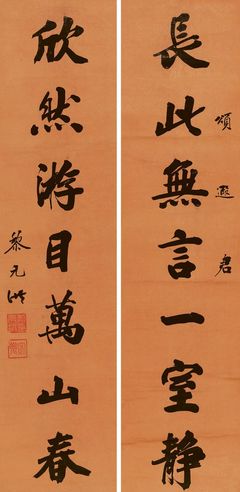 長此無言一室静
頌遐君
欣然游目萬山春
黎元洪